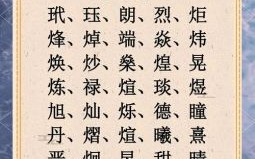 玳、珏、朗、烈、炬
烽、焯、端、焱、炜
焕、炒、燊、煌、晃
炼、禄、煊、琰、煜
旭、灿、烁、德、瞳
丹、熠、煊、曦、熹
晋、炯、昊、甜、晴